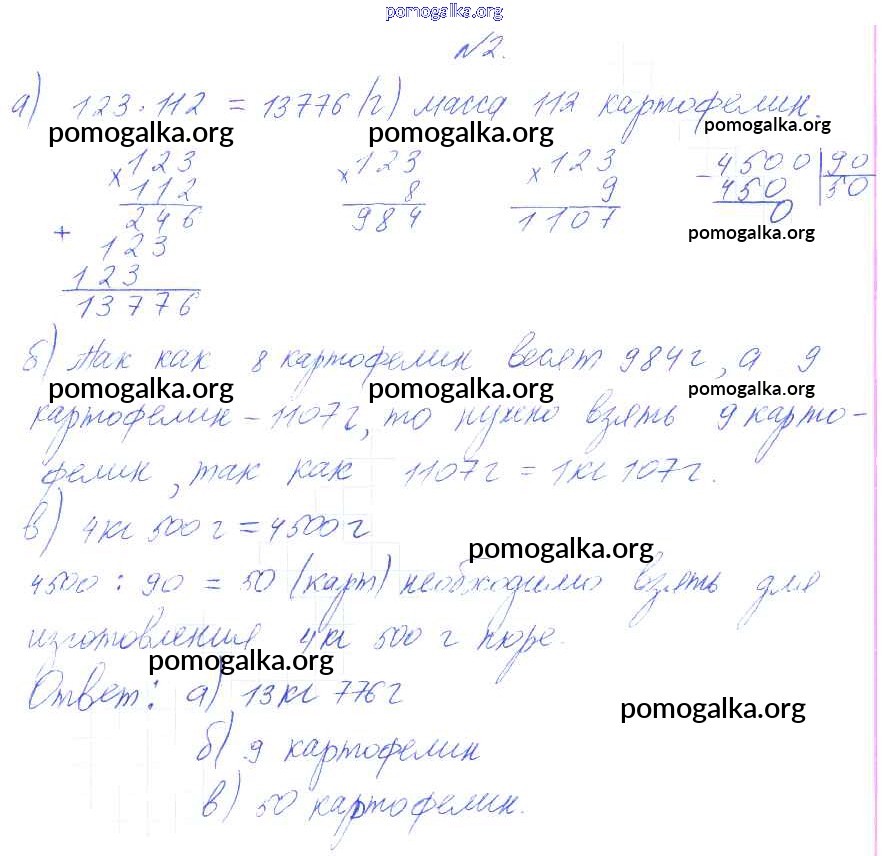 pomogalka.org
№2.
а) 123 · 112 = 13776 (г) масса 112 картофелин.
pomogalka.org pomogalka.org pomogalka.org
× 123
112
246
+ 123
123
13776
× 123
8
984
× 123
9
1107
- 4500 | 90
450 50
0
pomogalka.org
б) Так как 8 картофелин весят 984 г, а 9
pomogalka.org pomogalka.org pomogalka.org
картофелин – 1107 г, то нужно взять 9 карто-
фелин, так как 1107 г = 1 кг 107 г.
в) 4 кг 500 г = 4500 г
pomogalka.org
4500 : 90 = 50 (карт) необходимо взять для
изготовления 4 кг 500 г пюре.
pomogalka.org
Ответ: а) 13 кг 776 г
pomogalka.org
б) 9 картофелин
в) 50 картофелин.